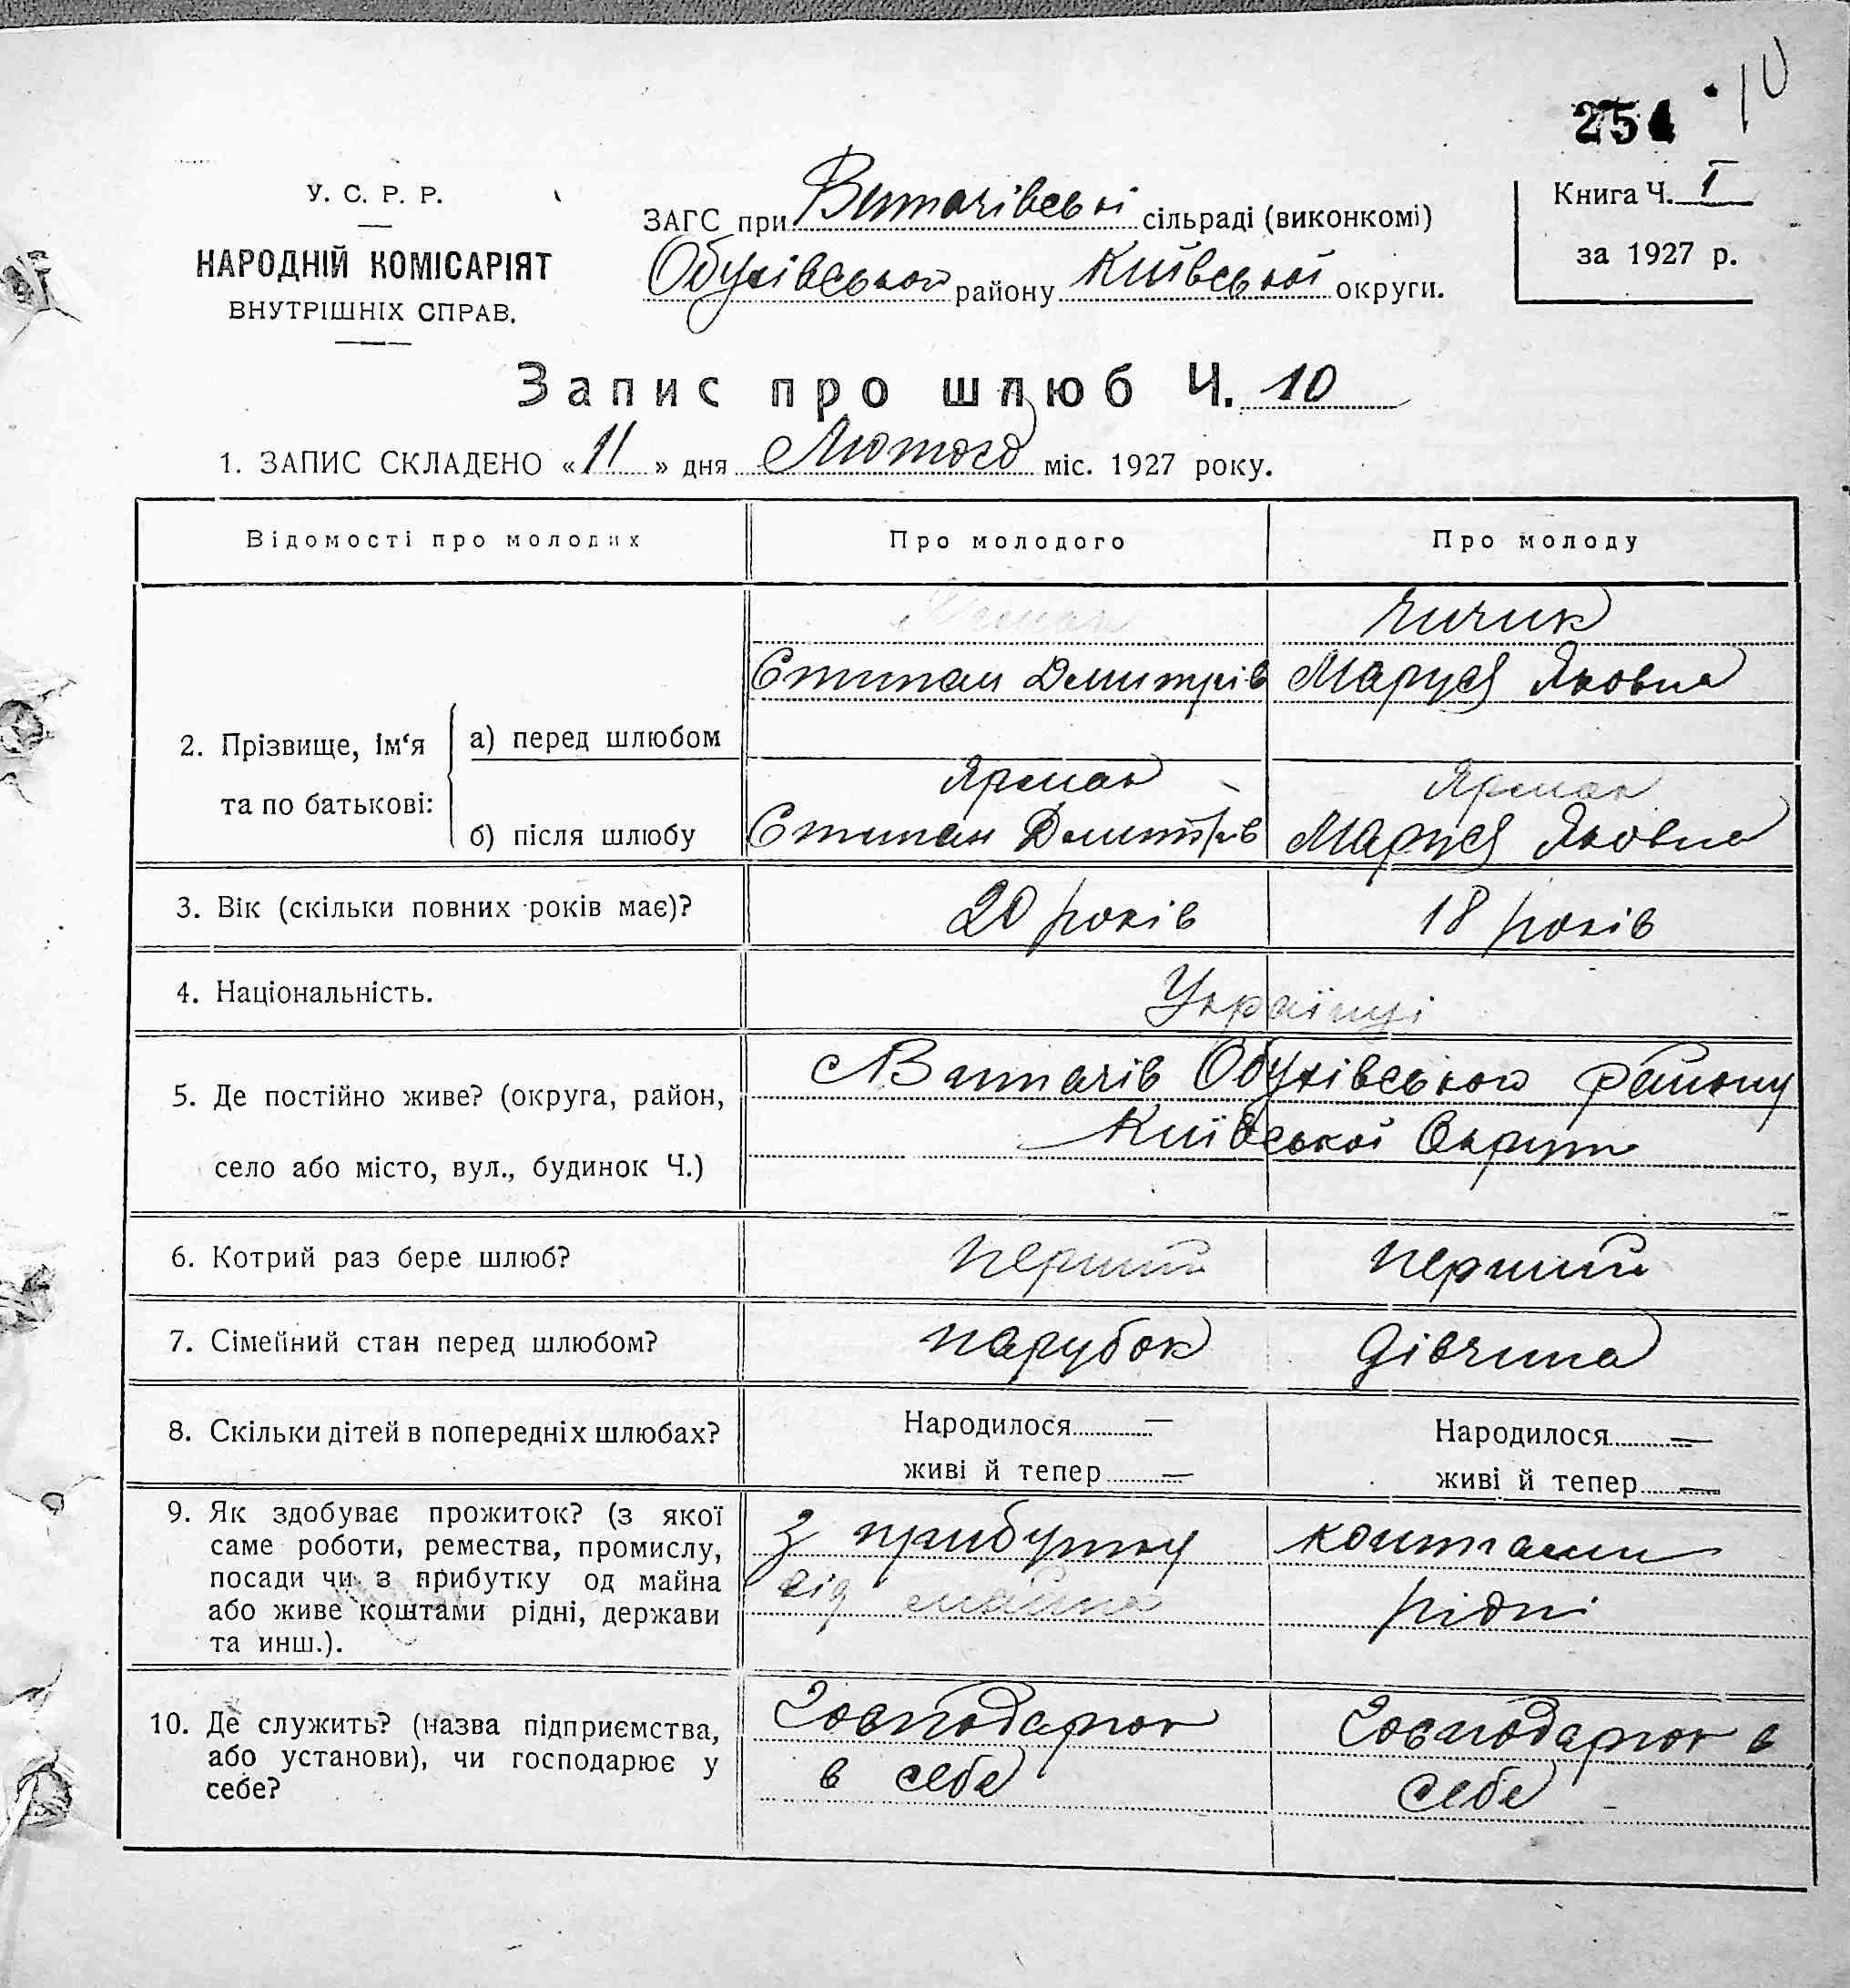 254 10
У. С. Р. Р.
НАРОДНІЙ КОМІСАРІЯТ
ВНУТРІШНІХ СПРАВ.
ЗАГС при Витачівські сільраді (виконкомі)
Обухівського району Київської округи.
Книга Ч. I
за 1927 р.
Запис про шлюб Ч. 10
1. ЗАПИС СКЛАДЕНО «11» дня Лютого міс. 1927 року.
Відомості про молодих
Про молодого
Про молоду
2. Прізвище, Ім‘я та по батькові:
а) перед шлюбом
Ярмак
Стипан Дмитрів
Чичик
Маруся Яковна
б) після шлюбу
Ярмак
Стипан Дмитрів
Ярмак
Маруся Яковна
3. Вік (скільки повних років має)?
20 років
18 років
4. Національність.
Українці
5. Де постійно живе? (округа, район,
село або місто, вул., будинок Ч.)
Витачів Обухівського району
Київської Округи
6. Котрий раз бере шлюб?
перший
перший
7. Сімейний стан перед шлюбом?
парубок
дівчина
8. Скільки дітей в попередніх шлюбах?
Народилося —
живі й тепер —
Народилося —
живі й тепер —
9. Як здобуває прожиток? (з якої
саме роботи, ремества, промислу,
посади чи з прибутку од майна
або живе коштами рідні, держави
та инш.).
З прибутку
від майна
коштами
рідні
10. Де служить? (назва підприємства,
або установи), чи господарює у
себе?
Господарює
в себе
Господарює в
себе